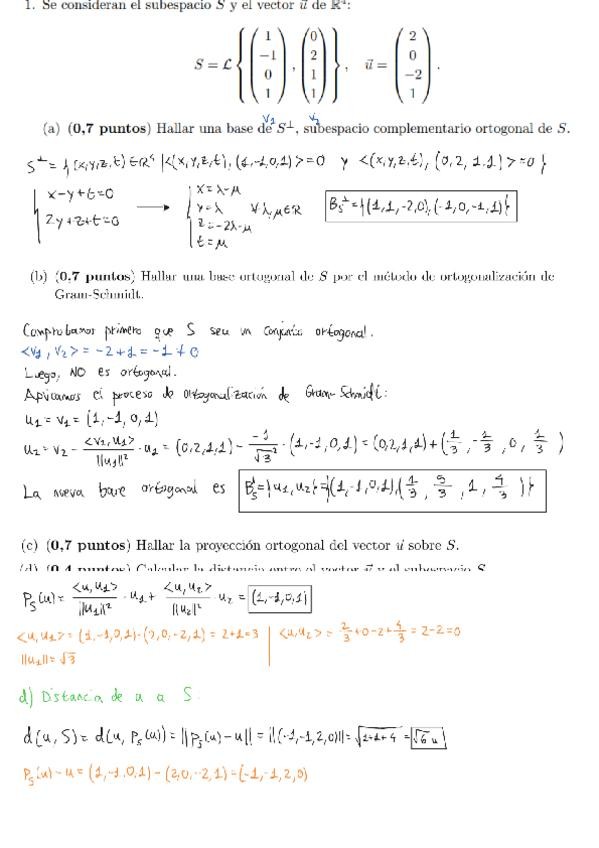 1. Se consideran el subespacio S y el vector u⃗ de ℝ⁴:
S = ℒ { (1, −1, 0, 1), (0, 2, 1, 1) }, u⃗ = (2, 0, −2, 1).
V₁ V₂
(a) (0,7 puntos) Hallar una base de S⊥, subespacio complementario ortogonal de S.
S⊥ = { (x,y,z,t) ∈ ℝ⁴ | <(x,y,z,t), (1,-1,0,1)> = 0 y <(x,y,z,t), (0,2,1,1)> = 0 }
x-y+t=0
2y+z+t=0
→
x=λ-μ
y=λ
z=-2λ-μ
t=μ
∀λ,μ∈ℝ
B_S⊥ = {(1,1,-2,0),(-1,0,-1,1)}
(b) (0,7 puntos) Hallar una base ortogonal de S por el método de ortogonalización de
Gram-Schmidt.
Comprobamos primero que S sea un conjunto ortogonal.
<v₁, v₂> = -2+1 = -1 ≠ 0
Luego, NO es ortogonal.
Aplicamos el proceso de ortogonalización de Gram-Schmidt:
u₁ = v₁ = (1,-1,0,1)
u₂ = v₂ - <v₂,u₁>/||u₁||² · u₁ = (0,2,1,1) - -1/√3² · (1,-1,0,1) = (0,2,1,1) + (1/3, -1/3, 0, 1/3)
La nueva base ortogonal es B'_S = {u₁,u₂} = {(1,-1,0,1),(1/3, 5/3, 1, 4/3)}
(c) (0,7 puntos) Hallar la proyección ortogonal del vector u⃗ sobre S.
(d) (0,4 puntos) Calcular la distancia entre el vector u⃗ y el subespacio S
P_S(u) = <u,u₁>/||u₁||² · u₁ + <u,u₂>/||u₂||² u₂ = (1,-1,0,1)
<u,u₁> = (1,-1,0,1)·(2,0,-2,1) = 2+1=3 | <u,u₂> = 2/3+0-2+4/3 = 2-2=0
||u₁|| = √3
d) Distancia de u a S.
d(u,S) = d(u, P_S(u)) = ||P_S(u) - u|| = ||(-1,-1,2,0)|| = √1+1+4 = √6 u
P_S(u) - u = (1,-1,0,1) - (2,0,-2,1) = (-1,-1,2,0)